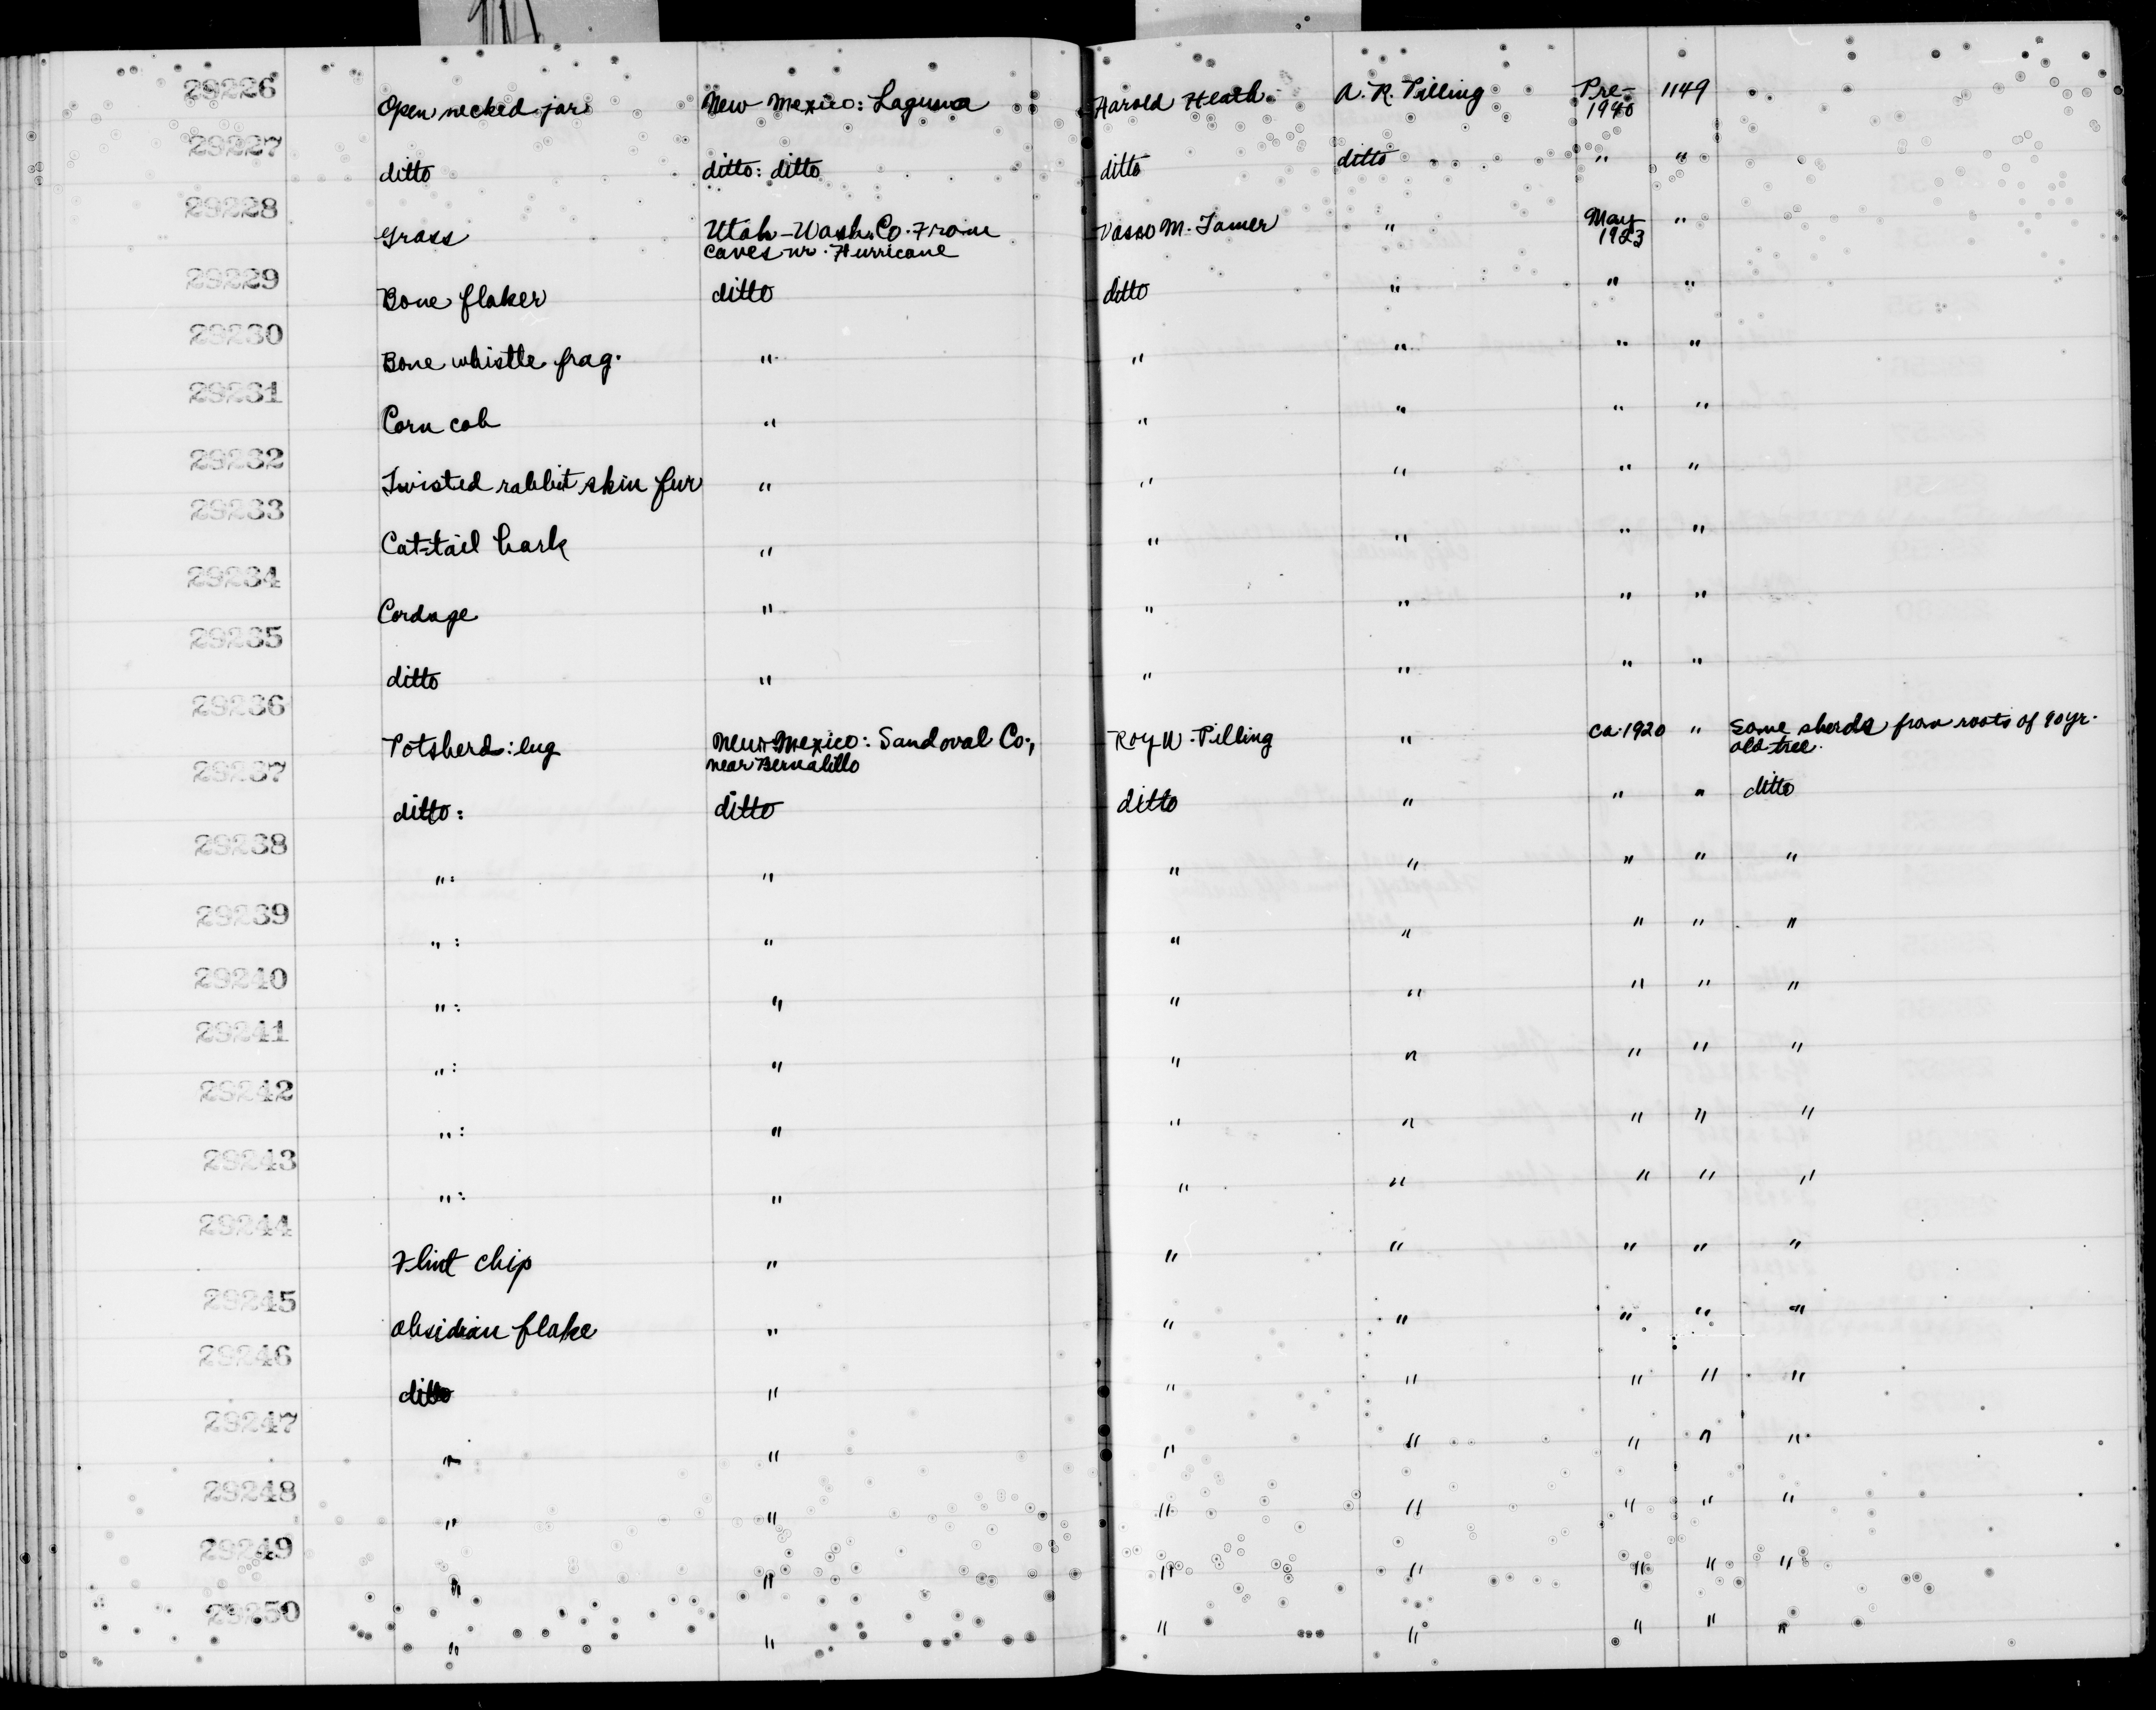 29226 Open necked jar New Mexico: Laguna Harold Heath A. R. Pilling Pre-1940 1149
29227 ditto ditto: ditto ditto ditto " "
29228 Grass Utah-Wash. Co. From " May 1923 "
caves nr. Hurricane
29229 Bone flaker ditto ditto " " "
29230 Bone whistle frag. " " " " "
29231 Corn cob " " " " "
29232 Twisted rabbit skin fur " " " " "
29233 Cat-tail bark " " " " "
29234 Cordage " " " " "
29235 ditto " " " " "
29236 Potsherd: lug New Mexico: Sandoval Co., Roy W. Pilling " ca. 1920 " Some sherds from roots of 90 yr.
near Bernalillo old tree.
29237 ditto: ditto ditto " " " ditto
29238 ": " " " " " "
29239 ": " " " " " "
29240 ": " " " " " "
29241 ": " " " " " "
29242 ": " " " " " "
29243 ": " " " " " "
29244 Flint chip " " " " " "
29245 obsidian flake " " " " " "
29246 ditto " " " " " "
29247 " " " " " " "
29248 " " " " " " "
29249 " " " " " " "
29250 " " " " " " "